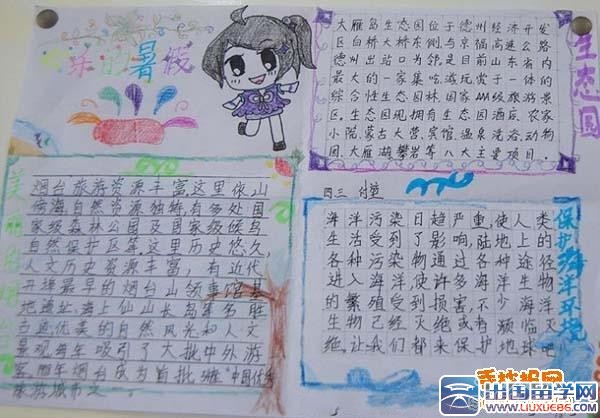 快乐的暑假
大雁岛生态园位于德州经济开发
区白桥大桥东侧与京福高速公路
德州出站口为邻是目前山东省内
最大的一家集吃游玩赏于一体的
综合性生态园林.国家AAA级旅游景
区。生态园现拥有生态园酒店.农家
小院.蒙古大营.宾馆.温泉洗浴.动物
园.大雁湖.攀岩等八大主要项目.
生态园
四三
美丽的烟台
烟台旅游资源丰富这里依山
傍海,自然资源独特,有多处国
家级森林公园及国家级候鸟
自然保护区等这里历史悠久,
人文历史资源丰富,有近代
开埠最早的烟台山领事馆基
地遗址,海上仙山长岛等名胜
古迹,优美的自然风光和人文
景观每年吸引了大批中外游
客.
海洋污染日趋严重,使人类
生活受到了影响,陆地上的
各种污染物通过各种途径
进入海洋,使许多海洋生物
的繁殖受到损害,不少海洋
生物已经灭绝或有濒临灭
绝.让我们都来保护地球吧
保护海洋环境
手抄报网
出国留学网
www.liuxue86.com